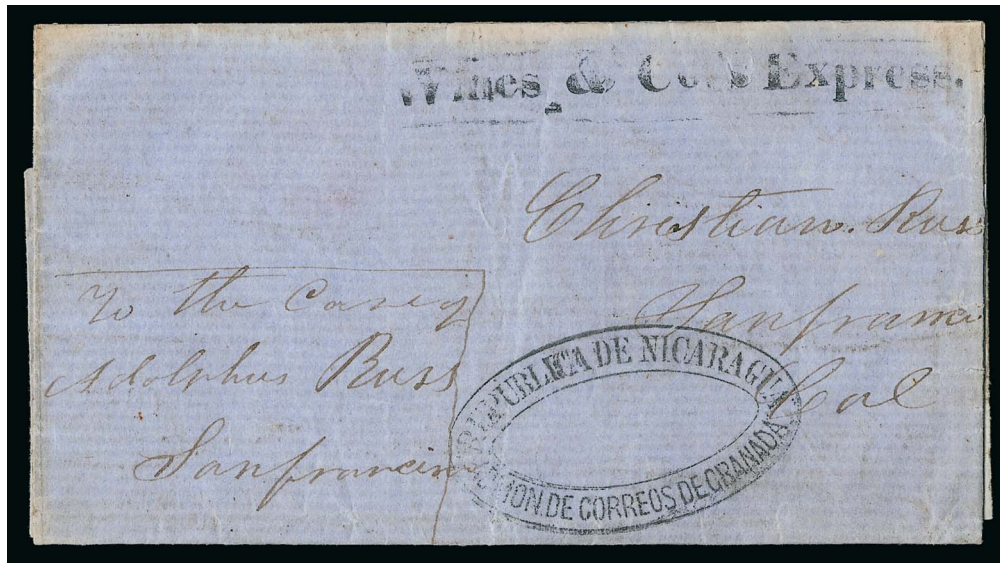 Wines & Co's Express.
Christian. Russ
Sanfrancisco
Cal
To the Care of
Adolphus Russ
Sanfrancisco
REPUBLICA DE NICARAGUA
DE CORREOS DE GRANADA